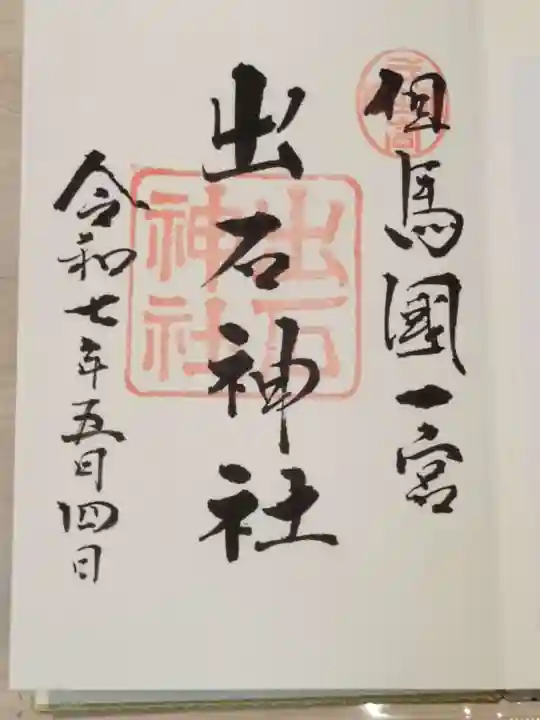 但馬國一宮
出石神社
出石神社
令和七年五月四日